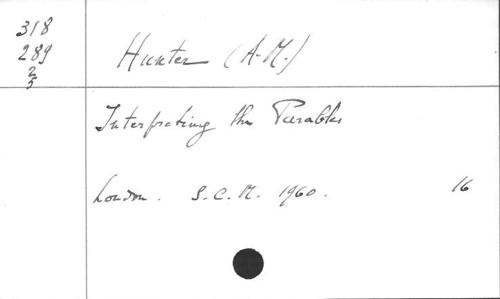 318
289
2
5
Hunter (A.M.)
Interpreting the Parables
London. S.C.M. 1960. 16